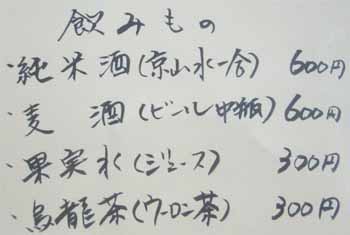 飲みもの
・純米酒(京山水一合) 600円
・麦 酒(ビール中瓶) 600円
・果実水(ジュース) 300円
・烏龍茶(ウーロン茶) 300円